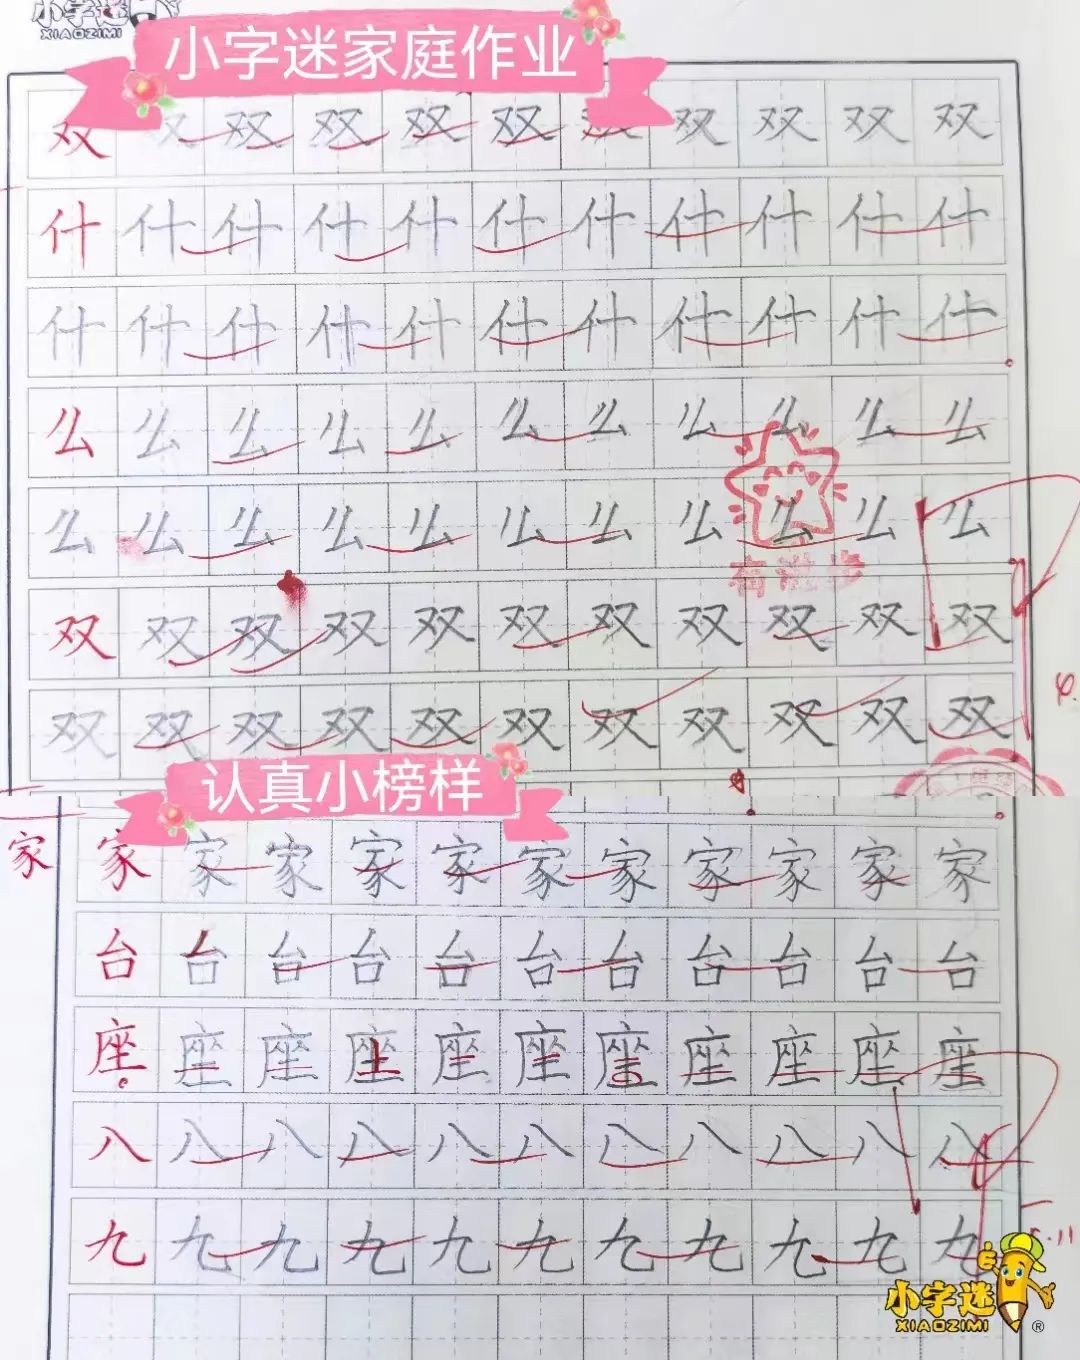 小字迷
XIAOZIMI
小字迷家庭作业
双 双 双 双 双 双 双 双 双 双 双
什 什 什 什 什 什 什 什 什 什 什
什 什 什 什 什 什 什 什 什 什 什
么 么 么 么 么 么 么 么 么 么 么
么 么 么 么 么 么 么 么 么 么 么
有进步
双 双 双 双 双 双 双 双 双 双 双
双 双 双 双 双 双 双 双 双 双 双
认真小榜样
家 家 家 家 家 家 家 家 家 家 家 家
台 台 台 台 台 台 台 台 台 台 台
座 座 座 座 座 座 座 座 座 座 座
八 八 八 八 八 八 八 八 八 八 八
九 九 九 九 九 九 九 九 九 九 九
小字迷
XIAOZIMI®